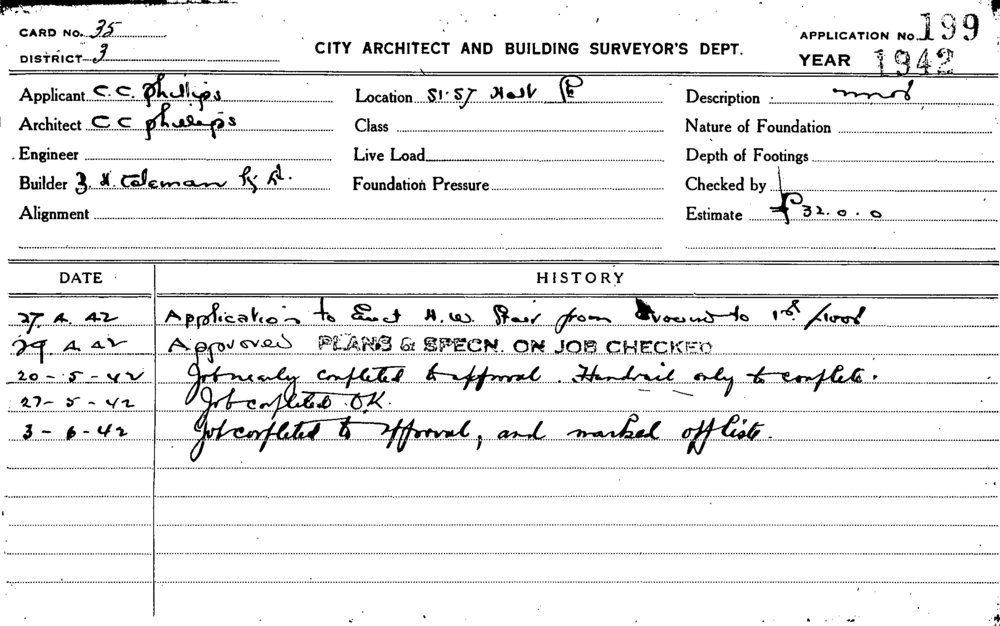 CARD No. 35
DISTRICT 3
CITY ARCHITECT AND BUILDING SURVEYOR'S DEPT.
APPLICATION No. 199
YEAR 1942
Applicant C.C. Phillips
Location 51.57
Description
Architect C C Phillips
Class
Nature of Foundation
Engineer
Live Load
Depth of Footings
Builder H. Coleman
Foundation Pressure
Checked by
Alignment
Estimate £32.0.0
DATE
HISTORY
27. 4. 42 Application to Erect H.W. Stair from Ground to 1st floor
29 4 42 Approved PLANS & SPECN. ON JOB CHECKED
20-5-42 Job nearly completed to approval. Handrail only to complete.
27-5-42 Job completed O.K.
3-6-42 Job completed to approval, and marked off list.